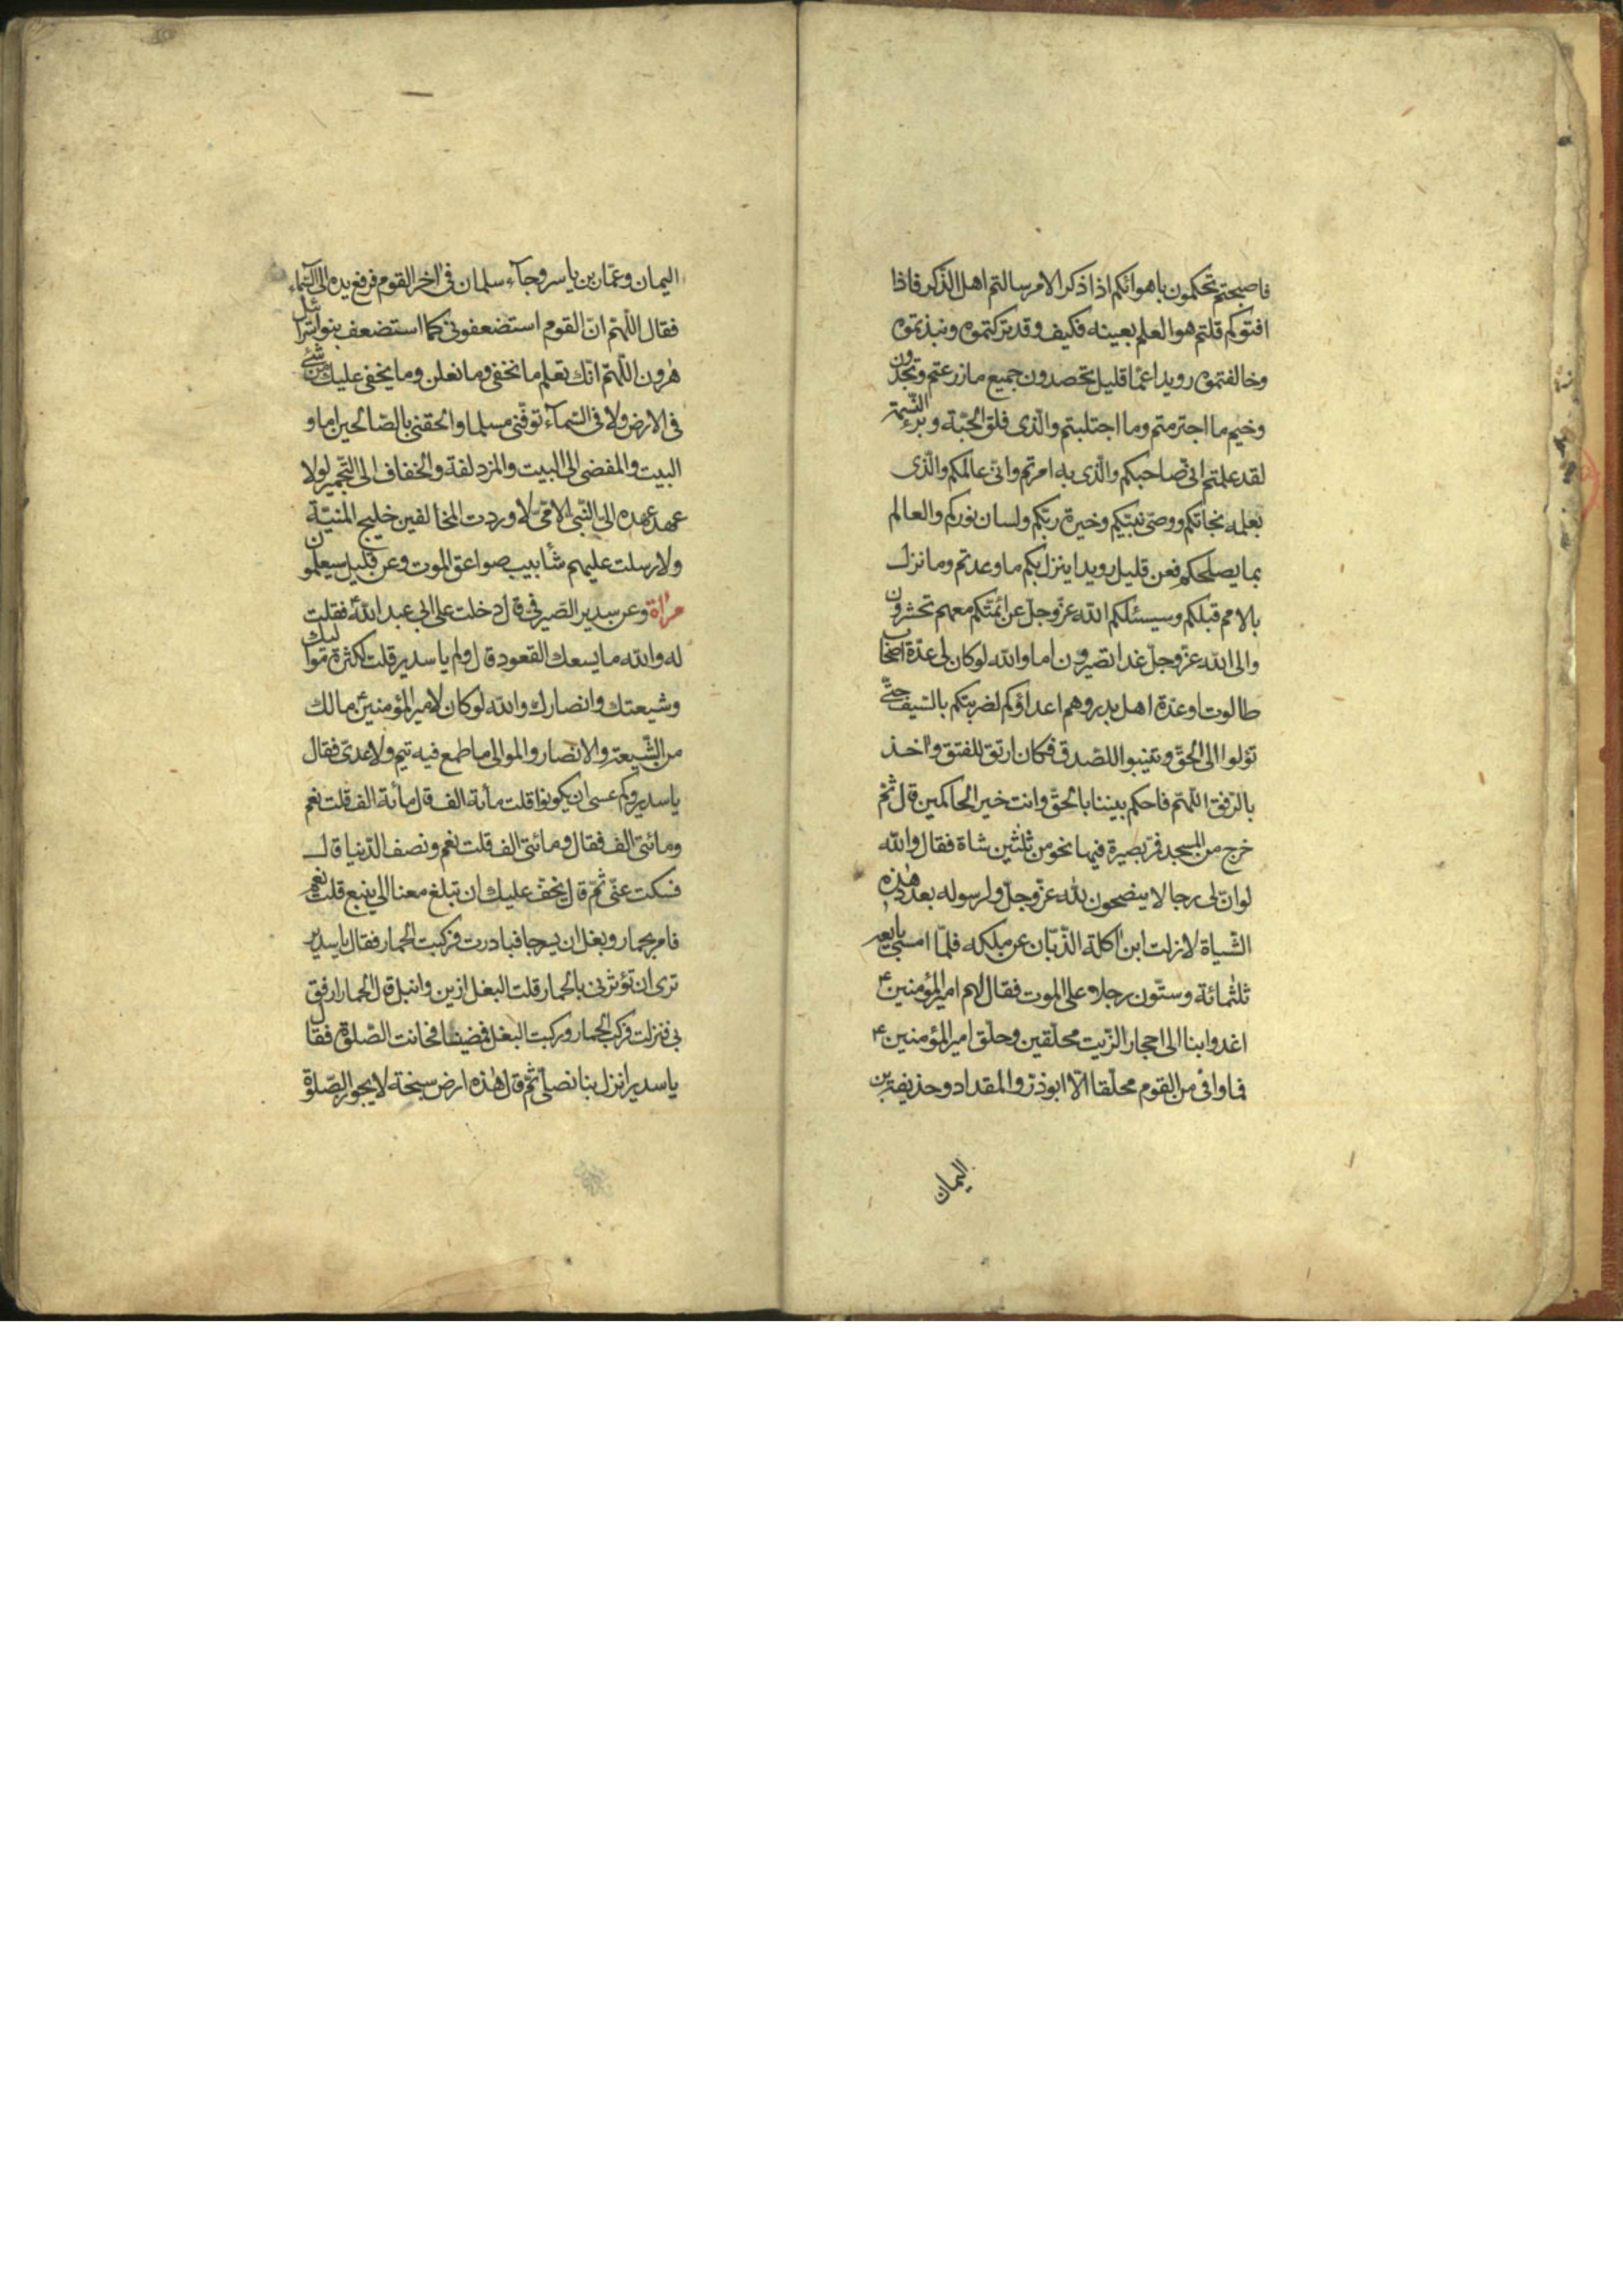 فاصبحتم تحكمون باهوائكم اذا ذكر الامر سالتم اهل الذّكر فاذا
افتوكم قلتم هو العلم بعينه فكيف وقد تركتموه ونبذتموه
وخالفتموه رويدا عمّا قليل تحصدون جميع ما زرعتم وتجدون
وخيم ما اجترمتم وما اجتلبتم والّذى فلق الحبّة وبرء النّسمة
لقد علمتم انّى صاحبكم والّذى به امرتم وانّى عالمكم والّذى
بعلمه نجاتكم ووصىّ نبيّكم وخيرة ربّكم ولسان نوركم والعالم
بما يصلحكم فعن قليل رويدا ينزل بكم ما وعدتم وما نزل
بالامم قبلكم وسيسئلكم الله عزّ وجلّ عن ائمّتكم معهم تحشرون
والى الله عزّ وجلّ غدا تصيرون اما والله لو كان لى عدّة اصحاب
طالوت او عدّة اهل بدر وهم اعداؤكم لضربتكم بالسّيف حتّى
تؤلوا الى الحقّ وتنيبوا للصّدق فكان ارتق للفتق وآخذ
بالرّفق اللّهمّ فاحكم بيننا بالحقّ وانت خير الحاكمين قال ثمّ
خرج من المسجد فمرّ بصيرة فيها نحو من ثلثين شاة فقال والله
لو انّ لى رجالا ينصحون لله عزّ وجلّ ولرسوله بعدد هذه
الشّياة لازلت ابن آكلة الذّبّان عن ملكه فلمّا امسى بايعه
ثلثمائة وستّون رجلا على الموت فقال لهم امير المؤمنين ع
اغدوا بنا الى احجار الزّيت محلّقين وحلّق امير المؤمنين ع
فما وافى من القوم محلّقا الّا ابوذرّ والمقداد وحذيفة بن
اليمان
اليمان وعمّار بن ياسر وجآء سلمان فى اخر القوم فرفع يده الى السّماء
فقال اللّهمّ انّ القوم استضعفونى كما استضعف بنو اسرائيل
هٰرون اللّهمّ انّك تعلم ما نخفى وما نعلن وما يخفى عليك من شئ
فى الارض ولا فى السّمآء توفّنى مسلما والحقنى بالصّالحين اما و
البيت والمفضى الى البيت والمزدلفة والخفاف الى التّجمير لولا
عهد عهده الىّ النّبىّ الامّىّ لاوردت المخالفين خليج المنيّة
ولارسلت عليهم شآبيب صواعق الموت وعن قليل سيعلمون
مرآة وعن سدير الصّيرفى قال دخلت على ابى عبد الله ع فقلت
له والله ما يسعك القعود قال ولم يا سدير قلت لكثرة مواليك
وشيعتك وانصارك والله لو كان لامير المؤمنين ع مالك
من الشّيعة والانصار والموالى ما طمع فيه تيم ولا عدىّ فقال
يا سدير وكم عسى ان يكونوا قلت مأئة الف قال مأئة الف قلت نعم
ومائتى الف فقال ومائتى الف قلت نعم ونصف الدّنيا قال
فسكت عنّى ثمّ قال يخفّ عليك ان تبلغ معنا الى ينبع قلت نعم
فامر بحمار وبغل ان يسرجا فبادرت فركبت الحمار فقال يا سدير
ترى ان تؤثرنى بالحمار قلت البغل ازين وانبل قال الحمار ارفق
بى فنزلت فركب الحمار وركبت البغل فمضينا فحانت الصّلوة فقال
يا سدير انزل بنا نصلّى ثمّ قال هٰذه ارض سبخة لا يجوز الصّلوة